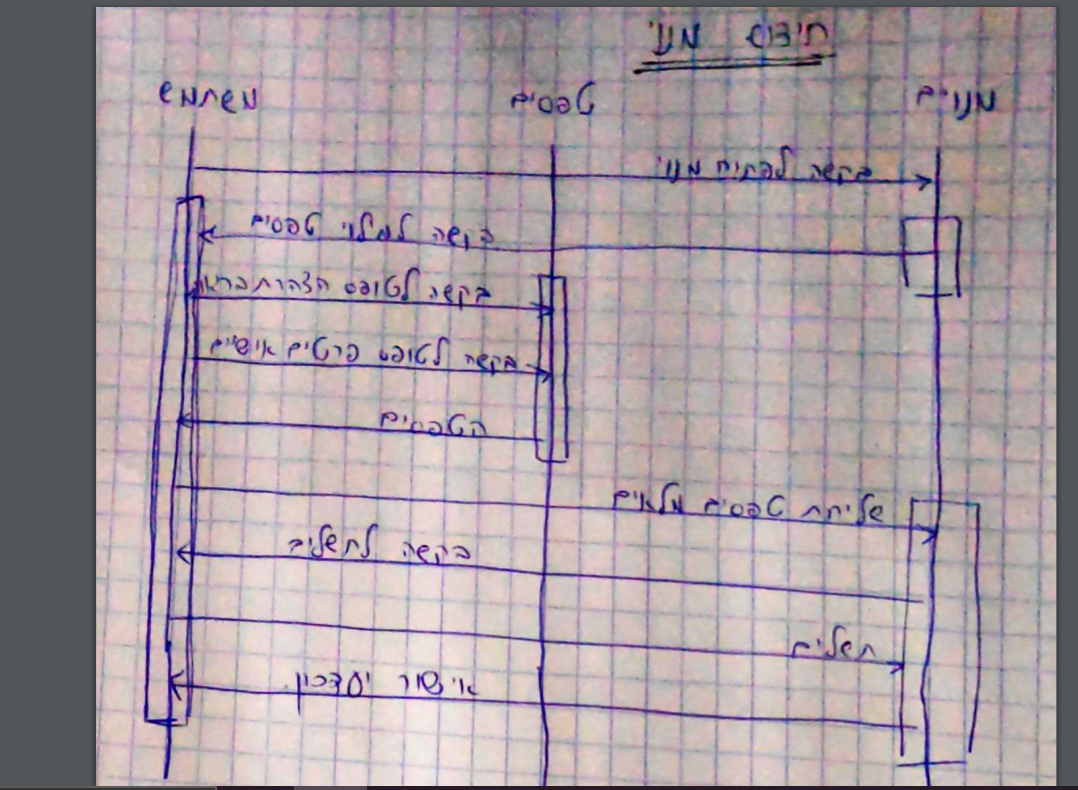 חידוש מנוי
מנויים
טפסים
משתמש
בקשה לפתיחת מנוי
בקשה למלוי טפסים
בקשה לטופס הצהרת בריאות
בקשה לטופס פרטים אישיים
הטפסים
שליחת טפסים מלאים
בקשה לתשלום
תשלום
אישור ועדכון